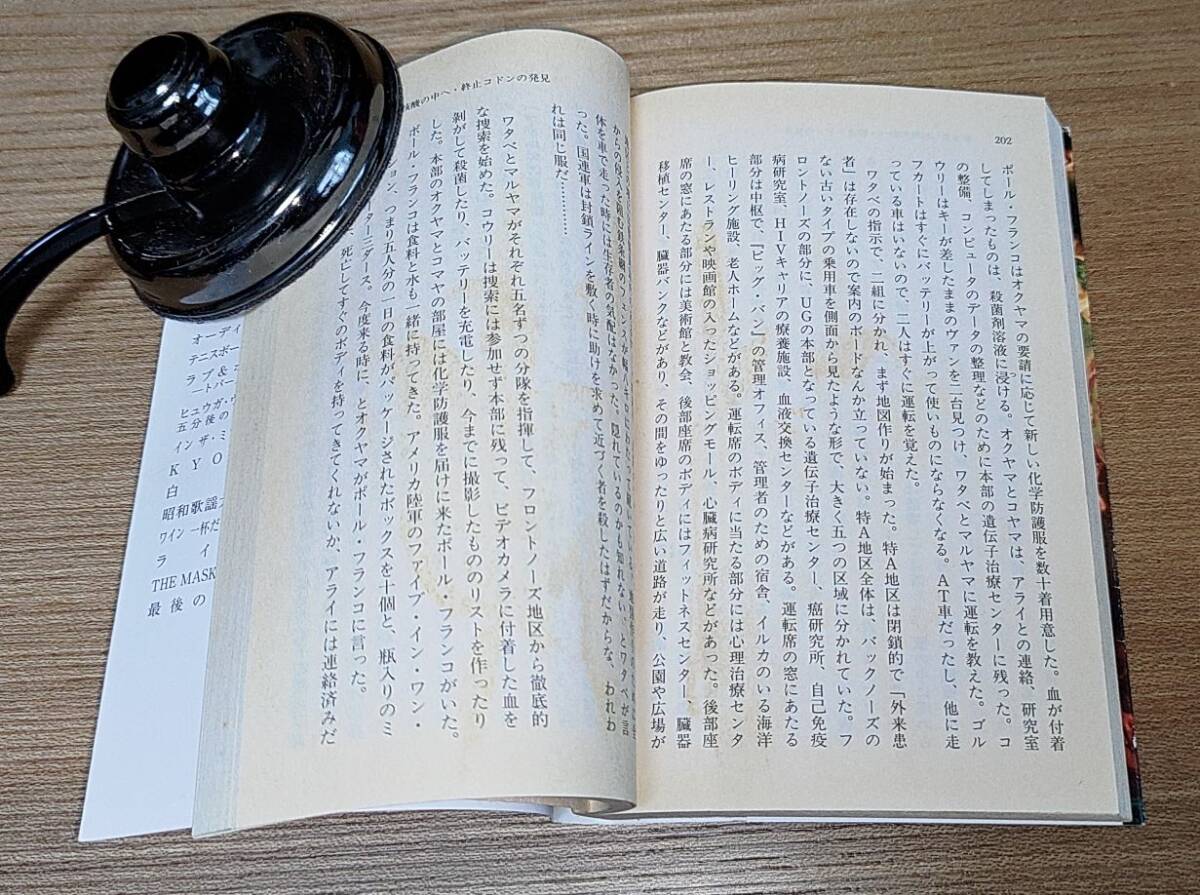 202
ポール・フランコはオクヤマの要請に応じて新しい化学防護服を数十着用意した。血が付着
してしまったものは、殺菌剤溶液に浸ける。オクヤマとコヤマは、アライとの連絡、研究室
の整備、コンピュータのデータの整理などのために本部の遺伝子治療センターに残った。コ
ウリーはキーが差したままのヴァンを二台見つけ、ワタベとマルヤマに運転を教えた。ゴル
フカートはすぐにバッテリーが上がって使いものにならなくなる。AT車だったし、他に走
っている車はいないので、二人はすぐに運転を覚えた。
ワタベの指示で、二組に分かれ、まず地図作りが始まった。特A地区は閉鎖的で「外来患
者」は存在しないので案内のボードなんか立っていない。特A地区全体は、バックノーズの
ない古いタイプの乗用車を側面から見たような形で、大きく五つの区域に分かれていた。フ
ロントノーズの部分に、UGの本部となっている遺伝子治療センター、癌研究所、自己免疫
病研究室、HIVキャリアの療養施設、血液交換センターなどがある。運転席の窓にあたる
部分は中枢で、「ビッグ・バン」の管理オフィス、管理者のための宿舎、イルカのいる海洋
ヒーリング施設、老人ホームなどがある。運転席のボディに当たる部分には心理治療センタ
ー、レストランや映画館の入ったショッピングモール、心臓病研究所などがあった。後部座
席の窓にあたる部分には美術館と教会、後部座席のボディにはフィットネスセンター、臓器
移植センター、臓器バンクなどがあり、その間をゆったりと広い道路が走り、公園や広場が
酸の中へ・終止コドンの発見
体を車で走った時には生存者の気配はなかった。隠れているのかも知れない、とワタベが言
った。国連軍は封鎖ラインを敷く時に助けを求めて近づく者を殺したはずだからな、われわ
れは同じ服だ…………
ワタベとマルヤマがそれぞれ五名ずつの分隊を指揮して、フロントノーズ地区から徹底的
な捜索を始めた。コウリーは捜索には参加せず本部に残って、ビデオカメラに付着した血を
剝がして殺菌したり、バッテリーを充電したり、今までに撮影したもののリストを作ったり
した。本部のオクヤマとコマヤの部屋には化学防護服を届けに来たポール・フランコがいた。
ポール・フランコは食料と水も一緒に持ってきた。アメリカ陸軍のファイブ・イン・ワン・
ション、つまり五人分の一日の食料がパッケージされたボックスを十個と、瓶入りのミ
ターニダース。今度来る時に、とオクヤマがポール・フランコに言った。
死亡してすぐのボディを持ってきてくれないか、アライには連絡済みだ
オーディ
テニスボー
ラブ&
ヒ
ユウガ・ウ
五分後の
イン ザ・ミ
K Y O
白
昭和歌謡
ワイン一杯だ
ラ イ
THE MASK
最後の